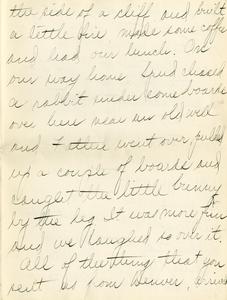 the side of a cliff and built
a little fire made some coffee
and had our lunch. On
our way home Bud chased
a rabbit under some boards
over here near an old well
and I then went over, pulled
up a couple of boards and
caught the little bunny
by the leg. It was more fun
and we laughed so over it.
All of the thing that you
sent us from Denver,